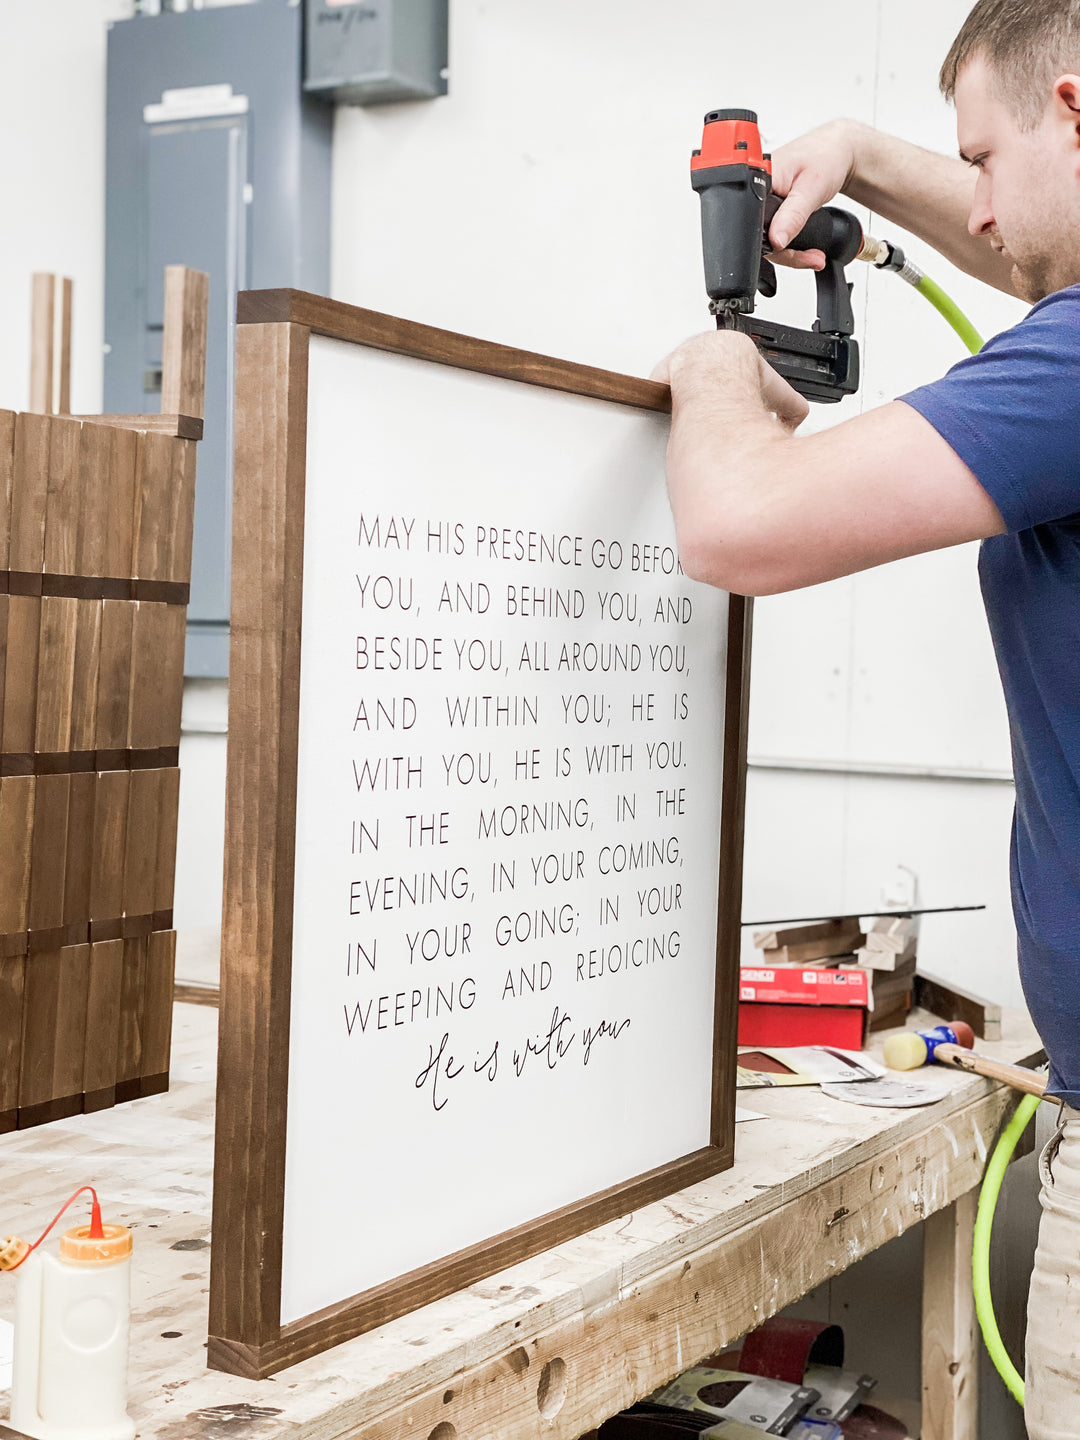 MAY HIS PRESENCE GO BEFOR
YOU, AND BEHIND YOU, AND
BESIDE YOU, ALL AROUND YOU,
AND WITHIN YOU; HE IS
WITH YOU, HE IS WITH YOU.
IN THE MORNING, IN THE
EVENING, IN YOUR COMING,
IN YOUR GOING; IN YOUR
WEEPING AND REJOICING
He is with you
SENCO